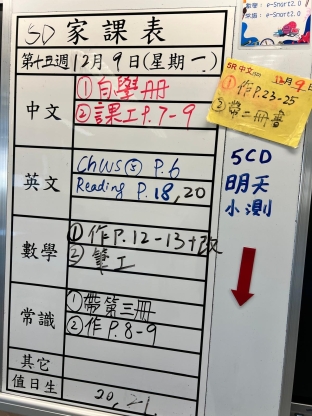 5D 家課表
第十五週12月9日(星期一)
中文
①自學冊
②課工P.7-9
英文
Chws⑤ P.6
Reading P.18,20
數學
①作P.12-13+改
②筆工
常識
①帶第三冊
②作P.8-9
其它
值日生
20, 21
e-Smart 2.0
常識: e-Smart2.0
5R 中文
12月9日
①作P.23-25
②帶二冊書
5CD
明天
小測